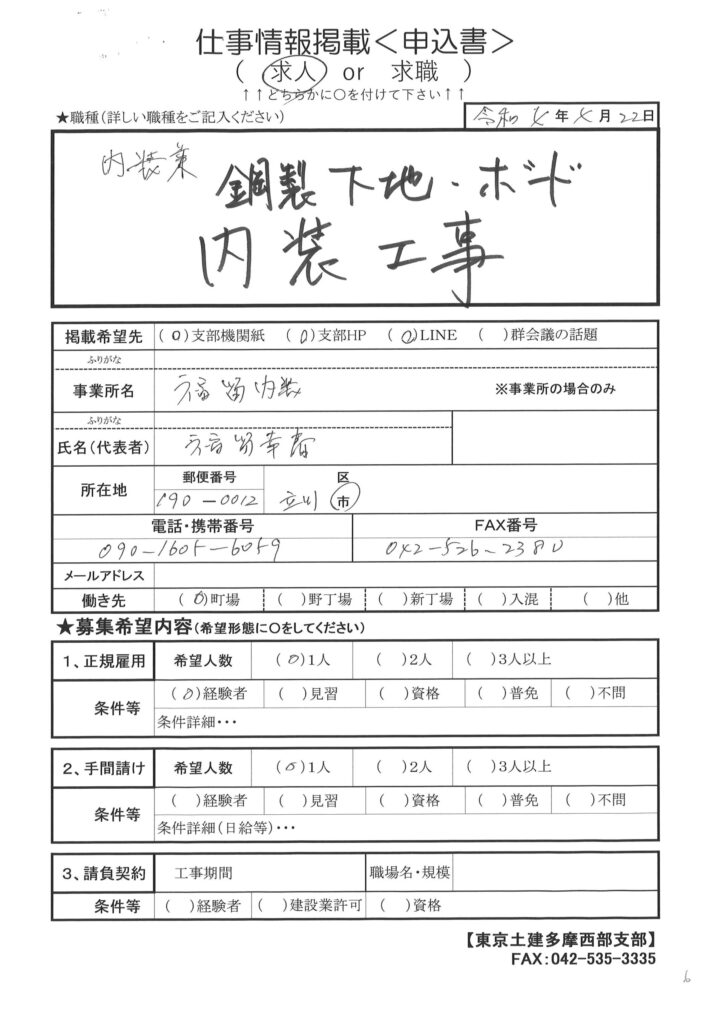 仕事情報掲載＜申込書＞
( 求人 or 求職 )
↑↑どちらかに○を付けて下さい↑↑
★職種(詳しい職種をご記入ください) 令和 年 月 22日
内装業 鋼製下地・ボード
内装工事
掲載希望先 (○)支部機関紙 (○)支部HP (○)LINE ( )群会議の話題
ふりがな
事業所名 福留内装 ※事業所の場合のみ
ふりがな
氏名(代表者) 福留幸春
所在地 郵便番号 区
190-0012 立川 市
電話・携帯番号 FAX番号
090-1605-6059 042-526-2380
メールアドレス
働き先 (○)町場 ( )野丁場 ( )新丁場 ( )入混 ( )他
★募集希望内容(希望形態に○をしてください)
1、正規雇用 希望人数 (○)1人 ( )2人 ( )3人以上
条件等 (○)経験者 ( )見習 ( )資格 ( )普免 ( )不問
条件詳細・・・
2、手間請け 希望人数 (○)1人 ( )2人 ( )3人以上
条件等 ( )経験者 ( )見習 ( )資格 ( )普免 ( )不問
条件詳細(日給等)・・・
3、請負契約 工事期間 職場名・規模
条件等 ( )経験者 ( )建設業許可 ( )資格
【東京土建多摩西部支部】
FAX:042-535-3335
6